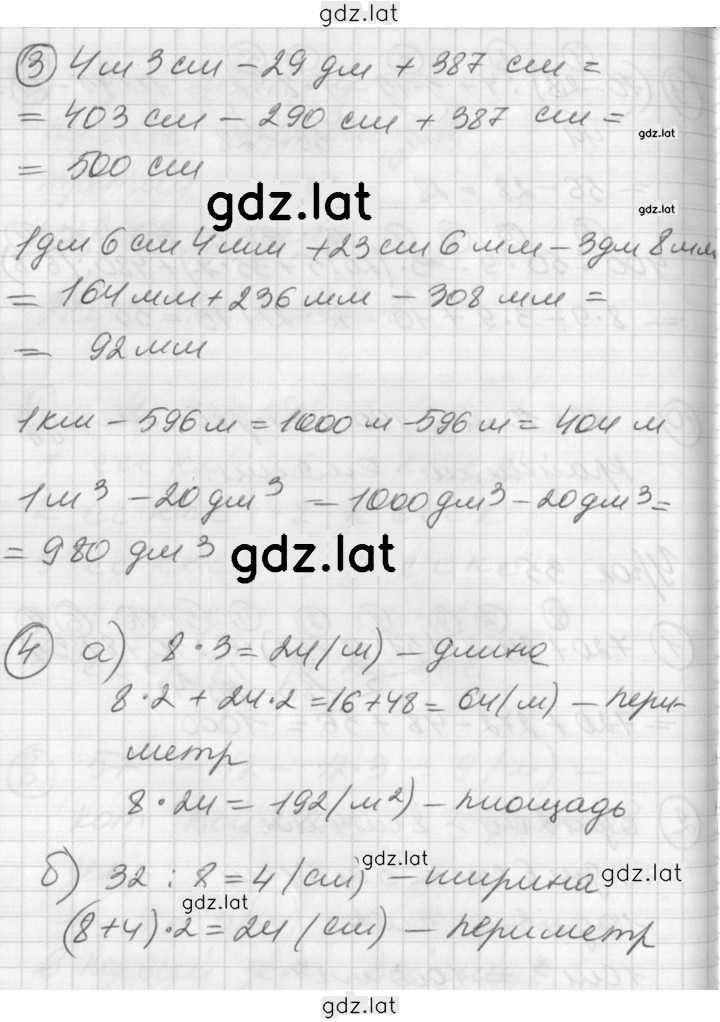 gdz.lat
③ 4м 3см - 29 дм + 387 см =
= 403 см - 290 см + 387 см =
gdz.lat
= 500 см
gdz.lat
gdz.lat
1дм 6см 4мм + 23см 6мм - 3дм 8мм
= 164мм + 236мм - 308 мм =
= 92мм
1км - 596м = 1000м - 596м = 404 м
1м³ - 20дм³ = 1000дм³ - 20дм³ =
= 980 дм³
gdz.lat
④ а) 8·3 = 24(м) - длина
8·2 + 24·2 = 16+48 = 64(м) - пери-
метр
8·24 = 192(м²) - площадь
gdz.lat
б) 32 : 8 = 4 (см) - ширина
gdz.lat
gdz.lat
(8+4)·2 = 24 (см) - периметр
gdz.lat